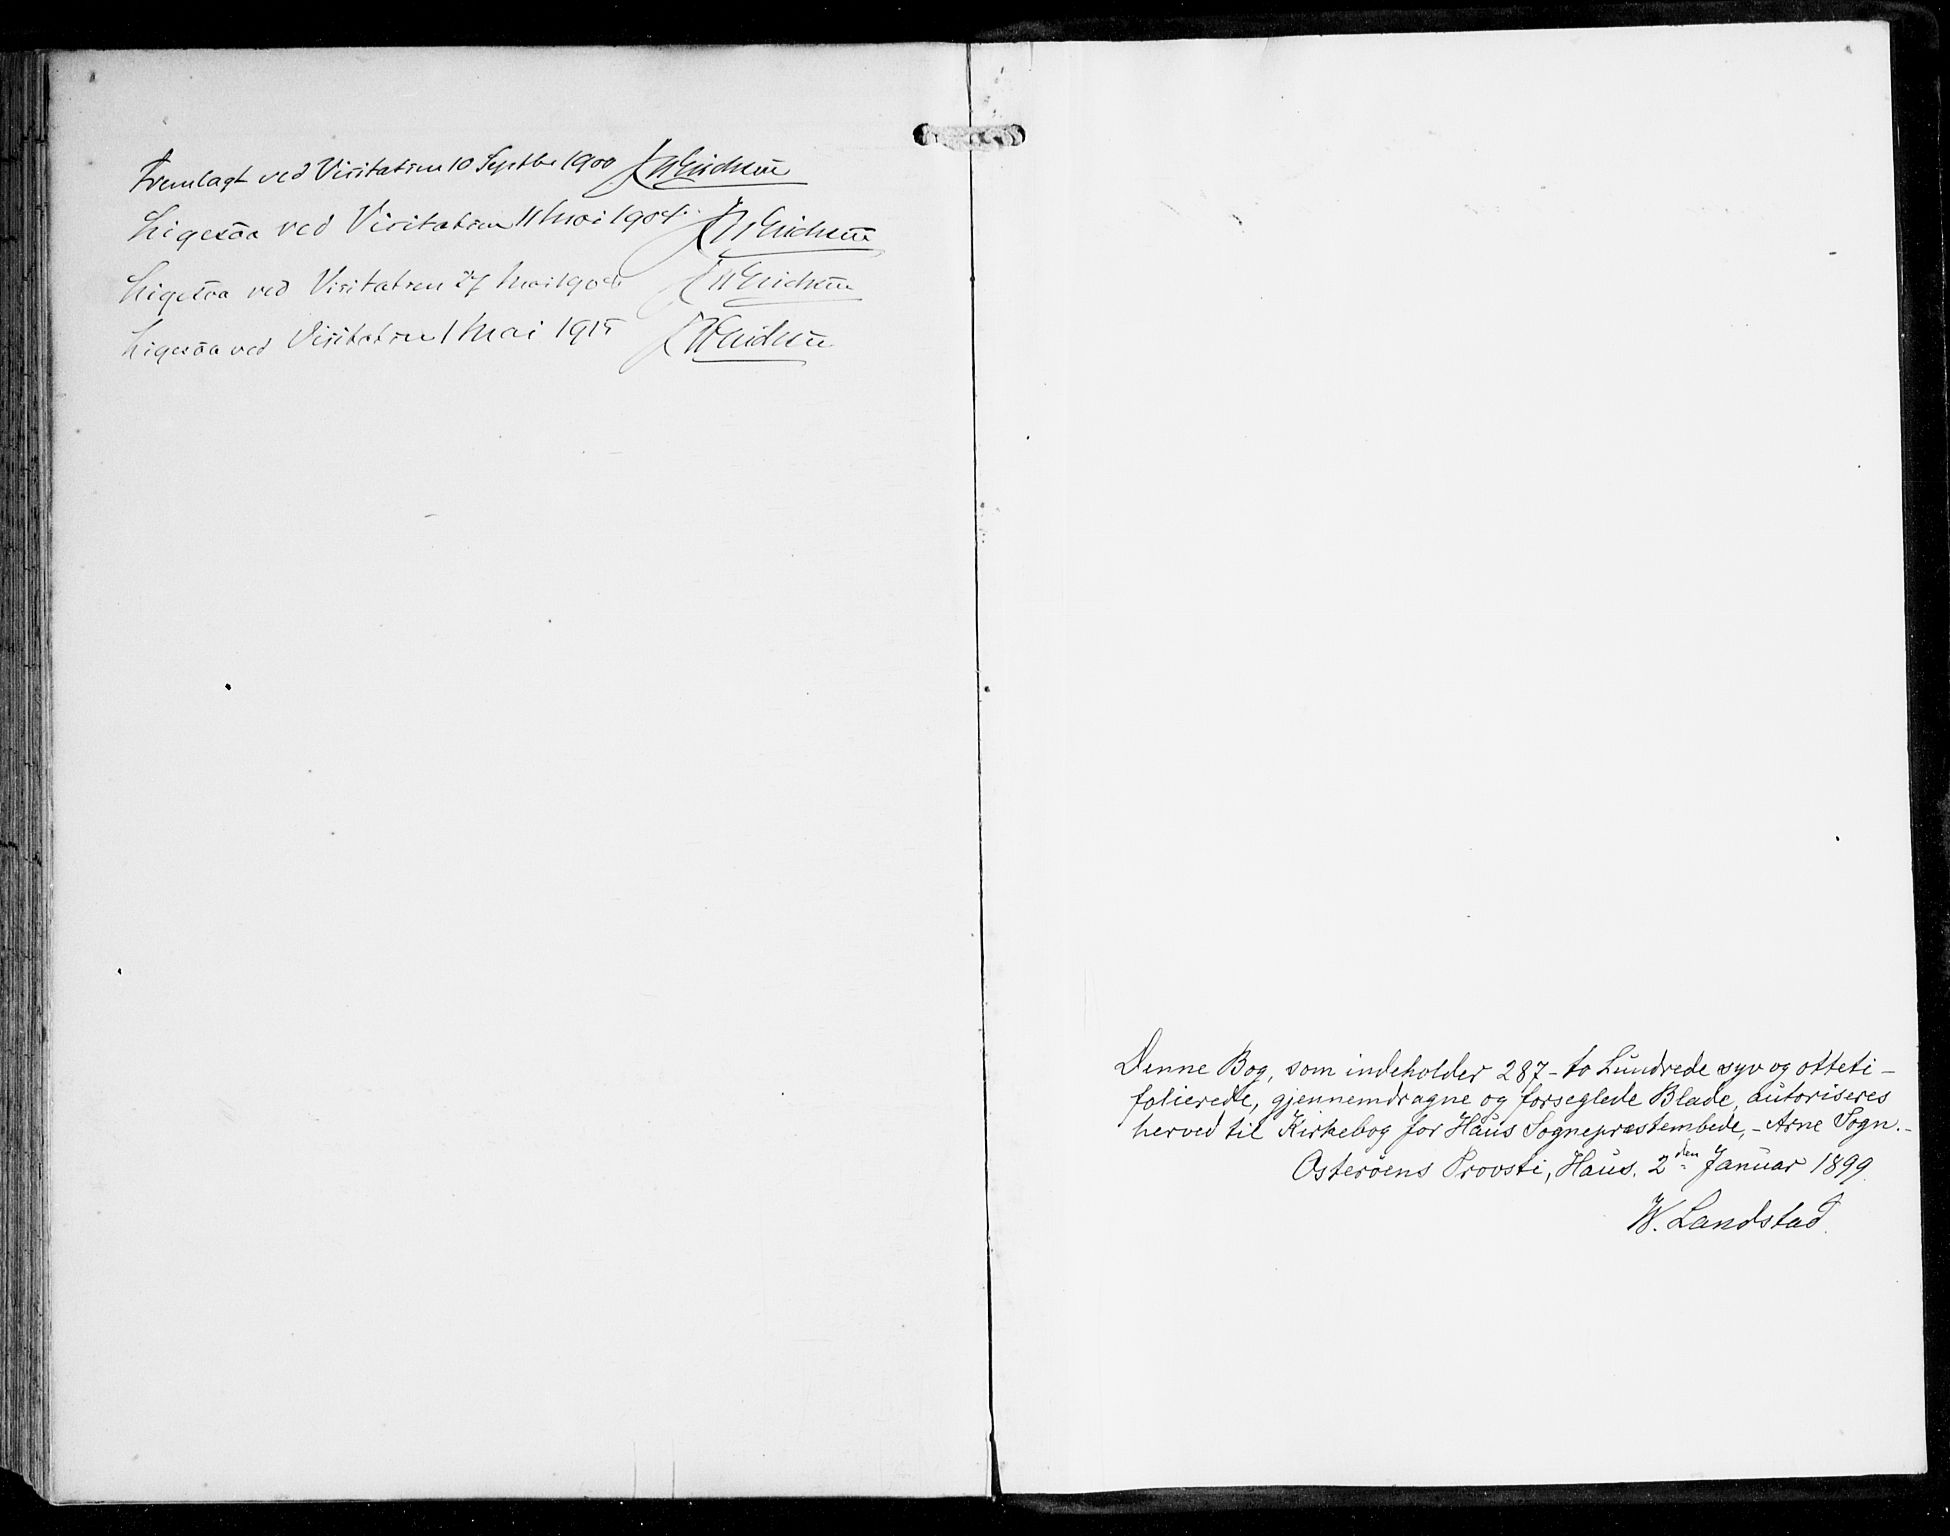 Fremlagt ved Visitatsen 10 Septbr 1900 J W Erichsen
Ligesaa ved Visitatsen 11 Mai 1904. J W Erichsen
Ligesaa ved Visitatsen 27 Mai J W Erichsen
Ligesaa ved Visitatsen 1 Mai 1915 J W Erichsen
Denne Bog, som indeholder 287 - to Hundrede syv og otteti -
folierede, gjennemdragne og forseglede Blade, autoriseres
herved til Kirkebog for Haus Sognepræstembede, - Arne Sogn. -
Osterøens Provsti, Haus. 2den Januar 1899.
W. Landstad.